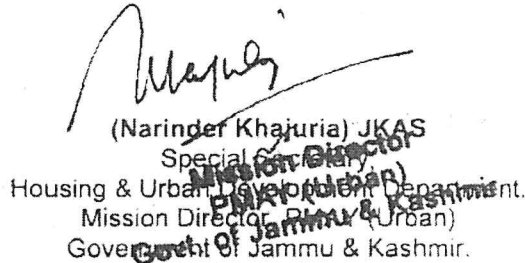 (Narinder Khajuria) JKAS
Special Secretary,
Housing & Urban Development Department.
Mission Director, PMAY (Urban)
Government of Jammu & Kashmir.
Mission Director
PMAY (Urban)
Govt. of Jammu & Kashmir